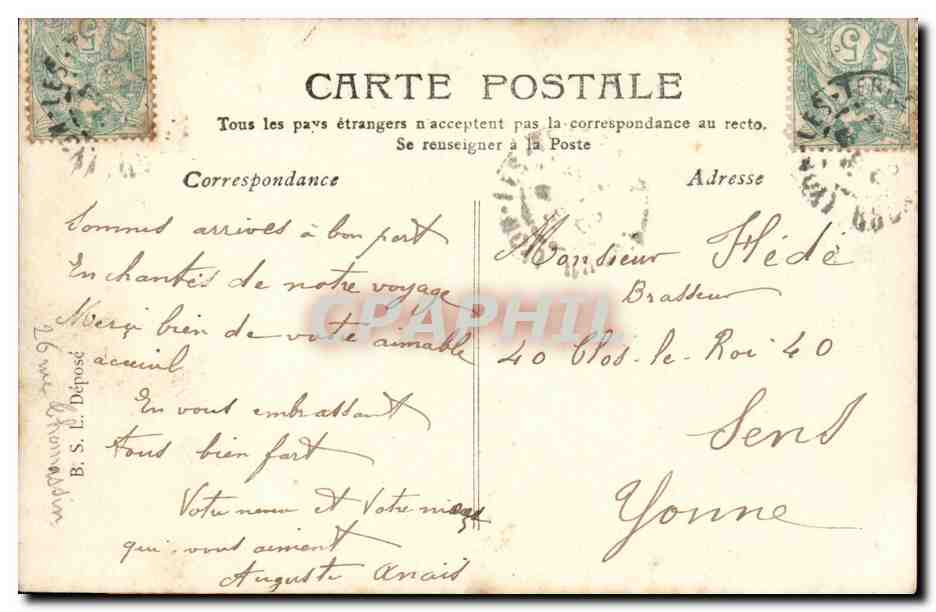 CARTE POSTALE
Tous les pays étrangers n'acceptent pas la correspondance au recto.
Se renseigner à la Poste
Correspondance
Sommes arrivés à bon port
Enchantés de notre voyage
Merçi bien de votre aimable
acceuil
En vous embrassant
tous bien fort
Votre neveu et Votre nièce
qui vous aiment
Auguste Anaïs
Adresse
Monsieur Hédé
Brasseur
40 Clos-le-Roi 40
Sens
Yonne
B. S. L. Déposé
26 rue Thomassin
CPAPHIL
5
5